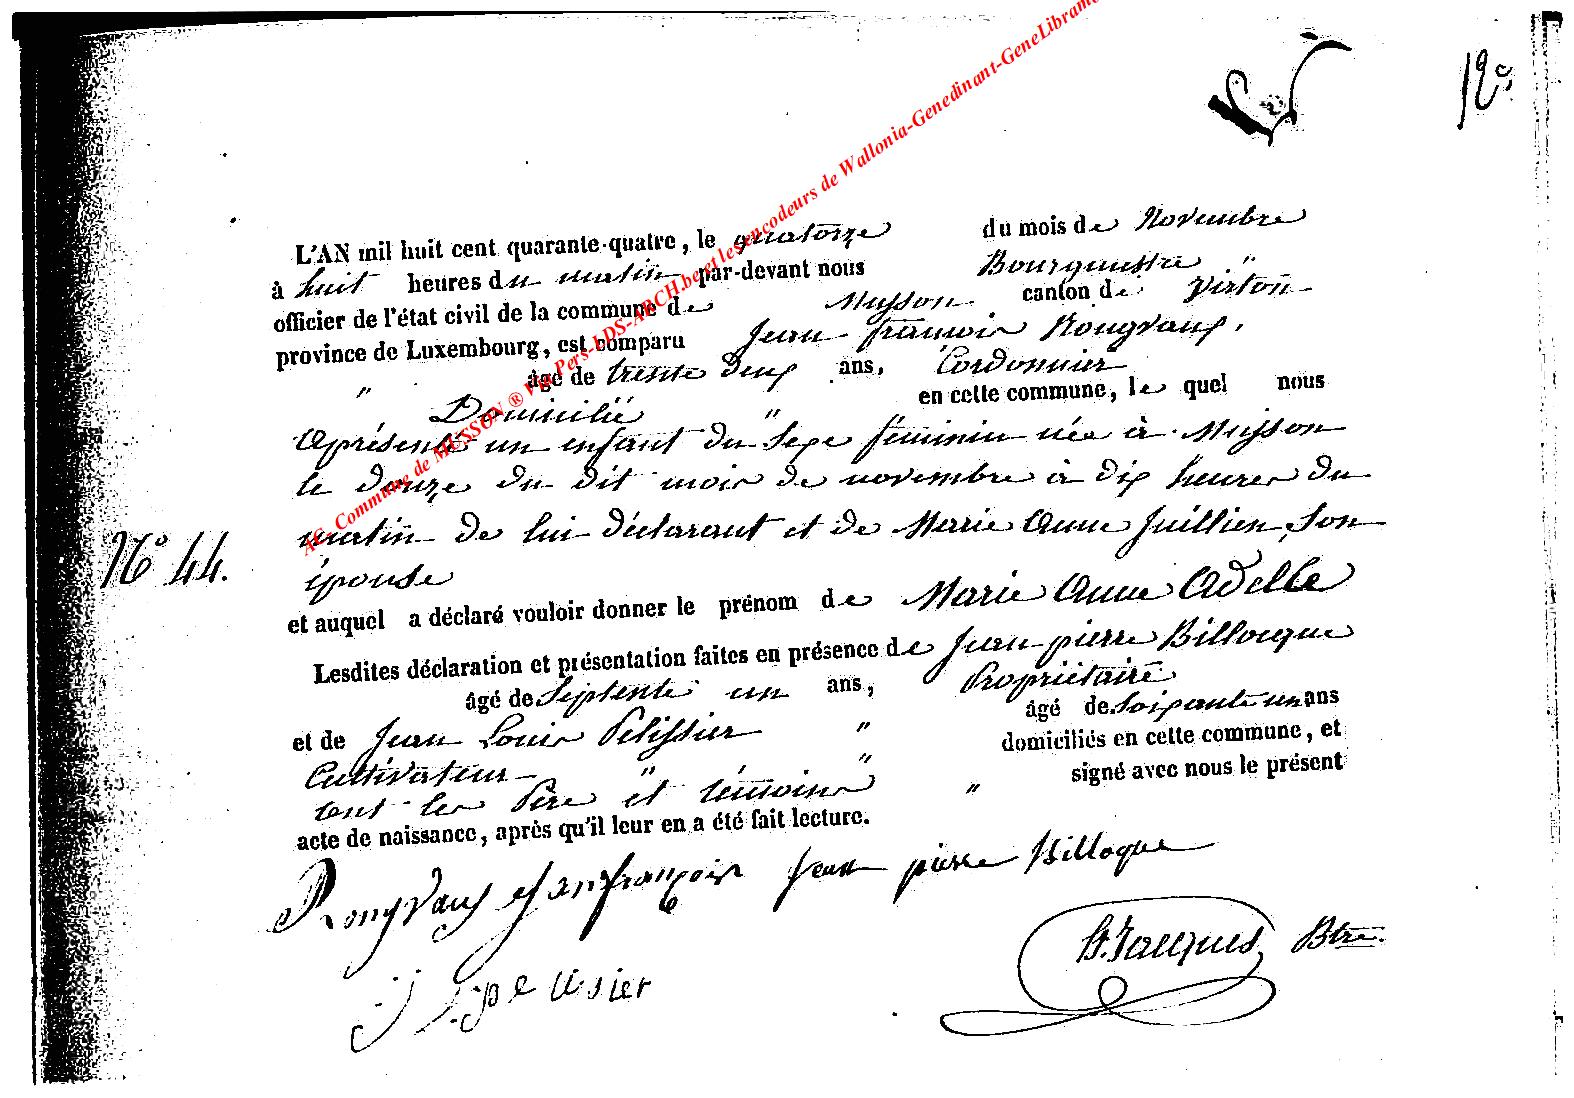 12e
L'AN mil huit cent quarante-quatre, le quatorze du mois de Novembre
à huit heures du matin par-devant nous Bourgmestre "
officier de l'état civil de la commune de Musson canton de Virton
province de Luxembourg, est comparu Jean françois Rongvaux,
" âgé de trente deux ans, Cordonnier
Domicilié " en cette commune, le quel nous
a présenté un enfant du sexe féminin née à Musson
le douze du dit mois de novembre à dix heures du
N° 44.
matin de lui déclarant et de Marie Anne Juillien, son
épouse
et auquel a déclaré vouloir donner le prénom de Marie Anne Adelle
Lesdites déclaration et présentation faites en présence de Jean pierre Billocque
âgé de Septente un ans, Propriétaire
et de Jean Louis Pelissier " âgé de soixante un ans
Cultivateur " " domiciliés en cette commune, et
ont les Père et témoins " signé avec nous le présent
acte de naissance, après qu'il leur en a été fait lecture.
Rongvaux jean françois Jean pierre Billoque
H. Jacques, Btre.
j L pelisier
AG. Commune de MUSSON ® Via Pers-LDS-ARCH.be et les encodeurs de Wallonia-Genedinant-GeneLibramo